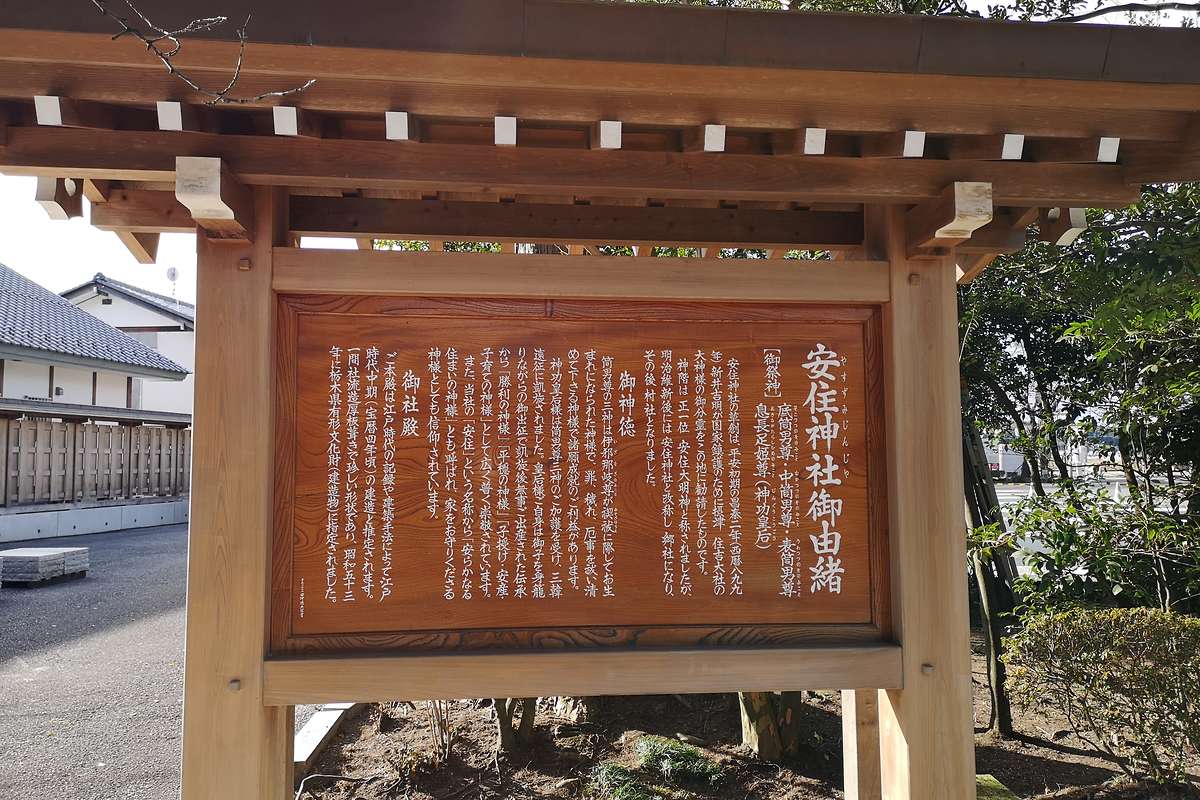 安住神社御由緒
やすずみじんじゃ
【御祭神】
底筒男尊 中筒男尊 表筒男尊
息長足姫尊(神功皇后)
安住神社の創祀は、平安初期の寛平二年(西暦八九九
年)新井吉明が国家鎮護のために摂津 住吉大社の
大神様の御分霊をこの地に勧請したものです。
神階は 正一位 安住大明神と称されましたが、
明治維新後には 安住神社と改称し 郷社になり、
その後 村社となりました。
御神徳
筒男尊の三神は伊邪那岐尊が禊祓に際してお生
まれになられた神様で、罪、穢れ、厄事を祓い清
めて下さる神様で諸願成就のご利益があります。
神功皇后様は筒男尊三神のご加護を受け、三韓
遠征に凱旋されました。皇后様ご自身は御子を身籠
りながらの御出征で凱旋後無事ご出産された伝承
から「勝利の神様」「平穏の神様」「子授け・安産
子育ての神様」として広く崇敬されています。
また、当社の「安住」という名称から「安らかなる
住まいの神様」とも呼ばれ、家をお守りくださる
神様としても信仰されています。
御社殿
ご本殿は江戸時代の記録や建築手法によって江戸
時代中期(宝暦四年頃)の建造と推定されます。
一間社流造厚板葺きで珍しい形状であり、昭和五十三
年に栃木県有形文化財(建造物)に指定されました。